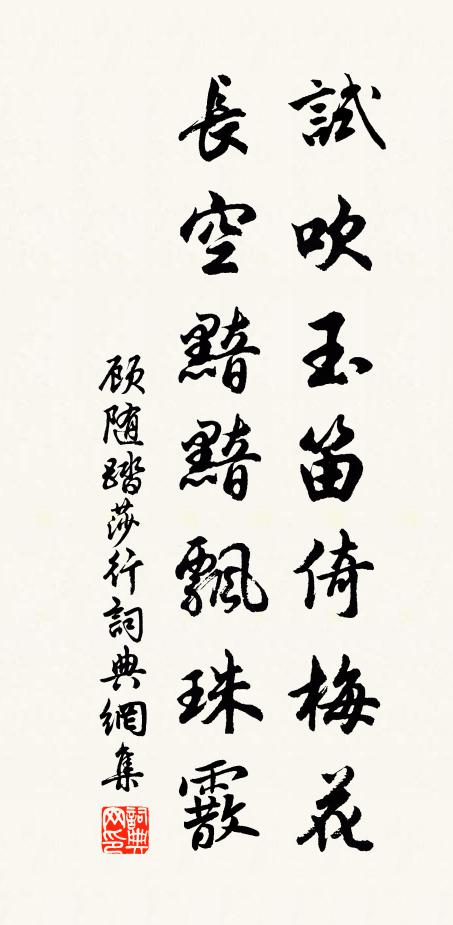 試吹玉笛倚梅花
長空黯黯飄珠霰
顾随踏莎行詞典網集
詞典網印